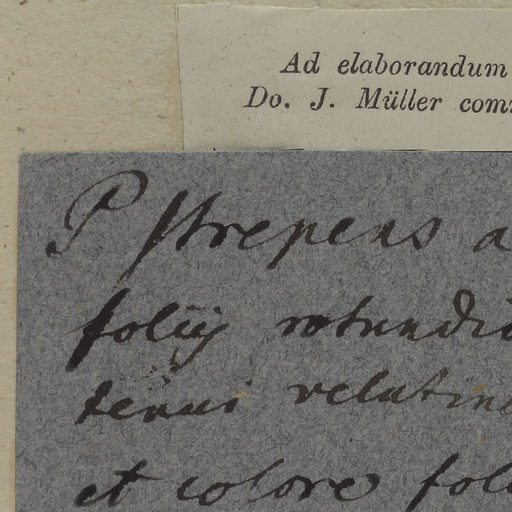 Ad elaborandum
Do. J. Müller com
P strepens a
foliis rotundio
tenui velutin
et colore foli